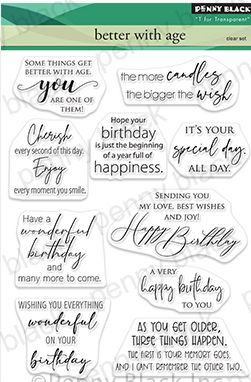 PENNY BLACK
"T for Transparent"
better with age
clear set
SOME THINGS GET
BETTER WITH AGE.
you
ARE ONE OF
THEM!
the more candles
the bigger the wish
Cherish
every second of this day.
Enjoy
every moment you smile.
Hope your
birthday
is just the beginning
of a year full of
happiness.
IT'S YOUR
special day.
ALL DAY.
SENDING YOU
MY LOVE, BEST WISHES
AND JOY!
Happy Birthday
Have a
wonderful
birthday
and
many more to come.
A VERY
happy birthday
TO YOU
WISHING YOU EVERYTHING
wonderful
ON YOUR
birthday
AS YOU GET OLDER,
THREE THINGS HAPPEN.
THE FIRST IS YOUR MEMORY GOES,
AND I CAN'T REMEMBER THE OTHER TWO.